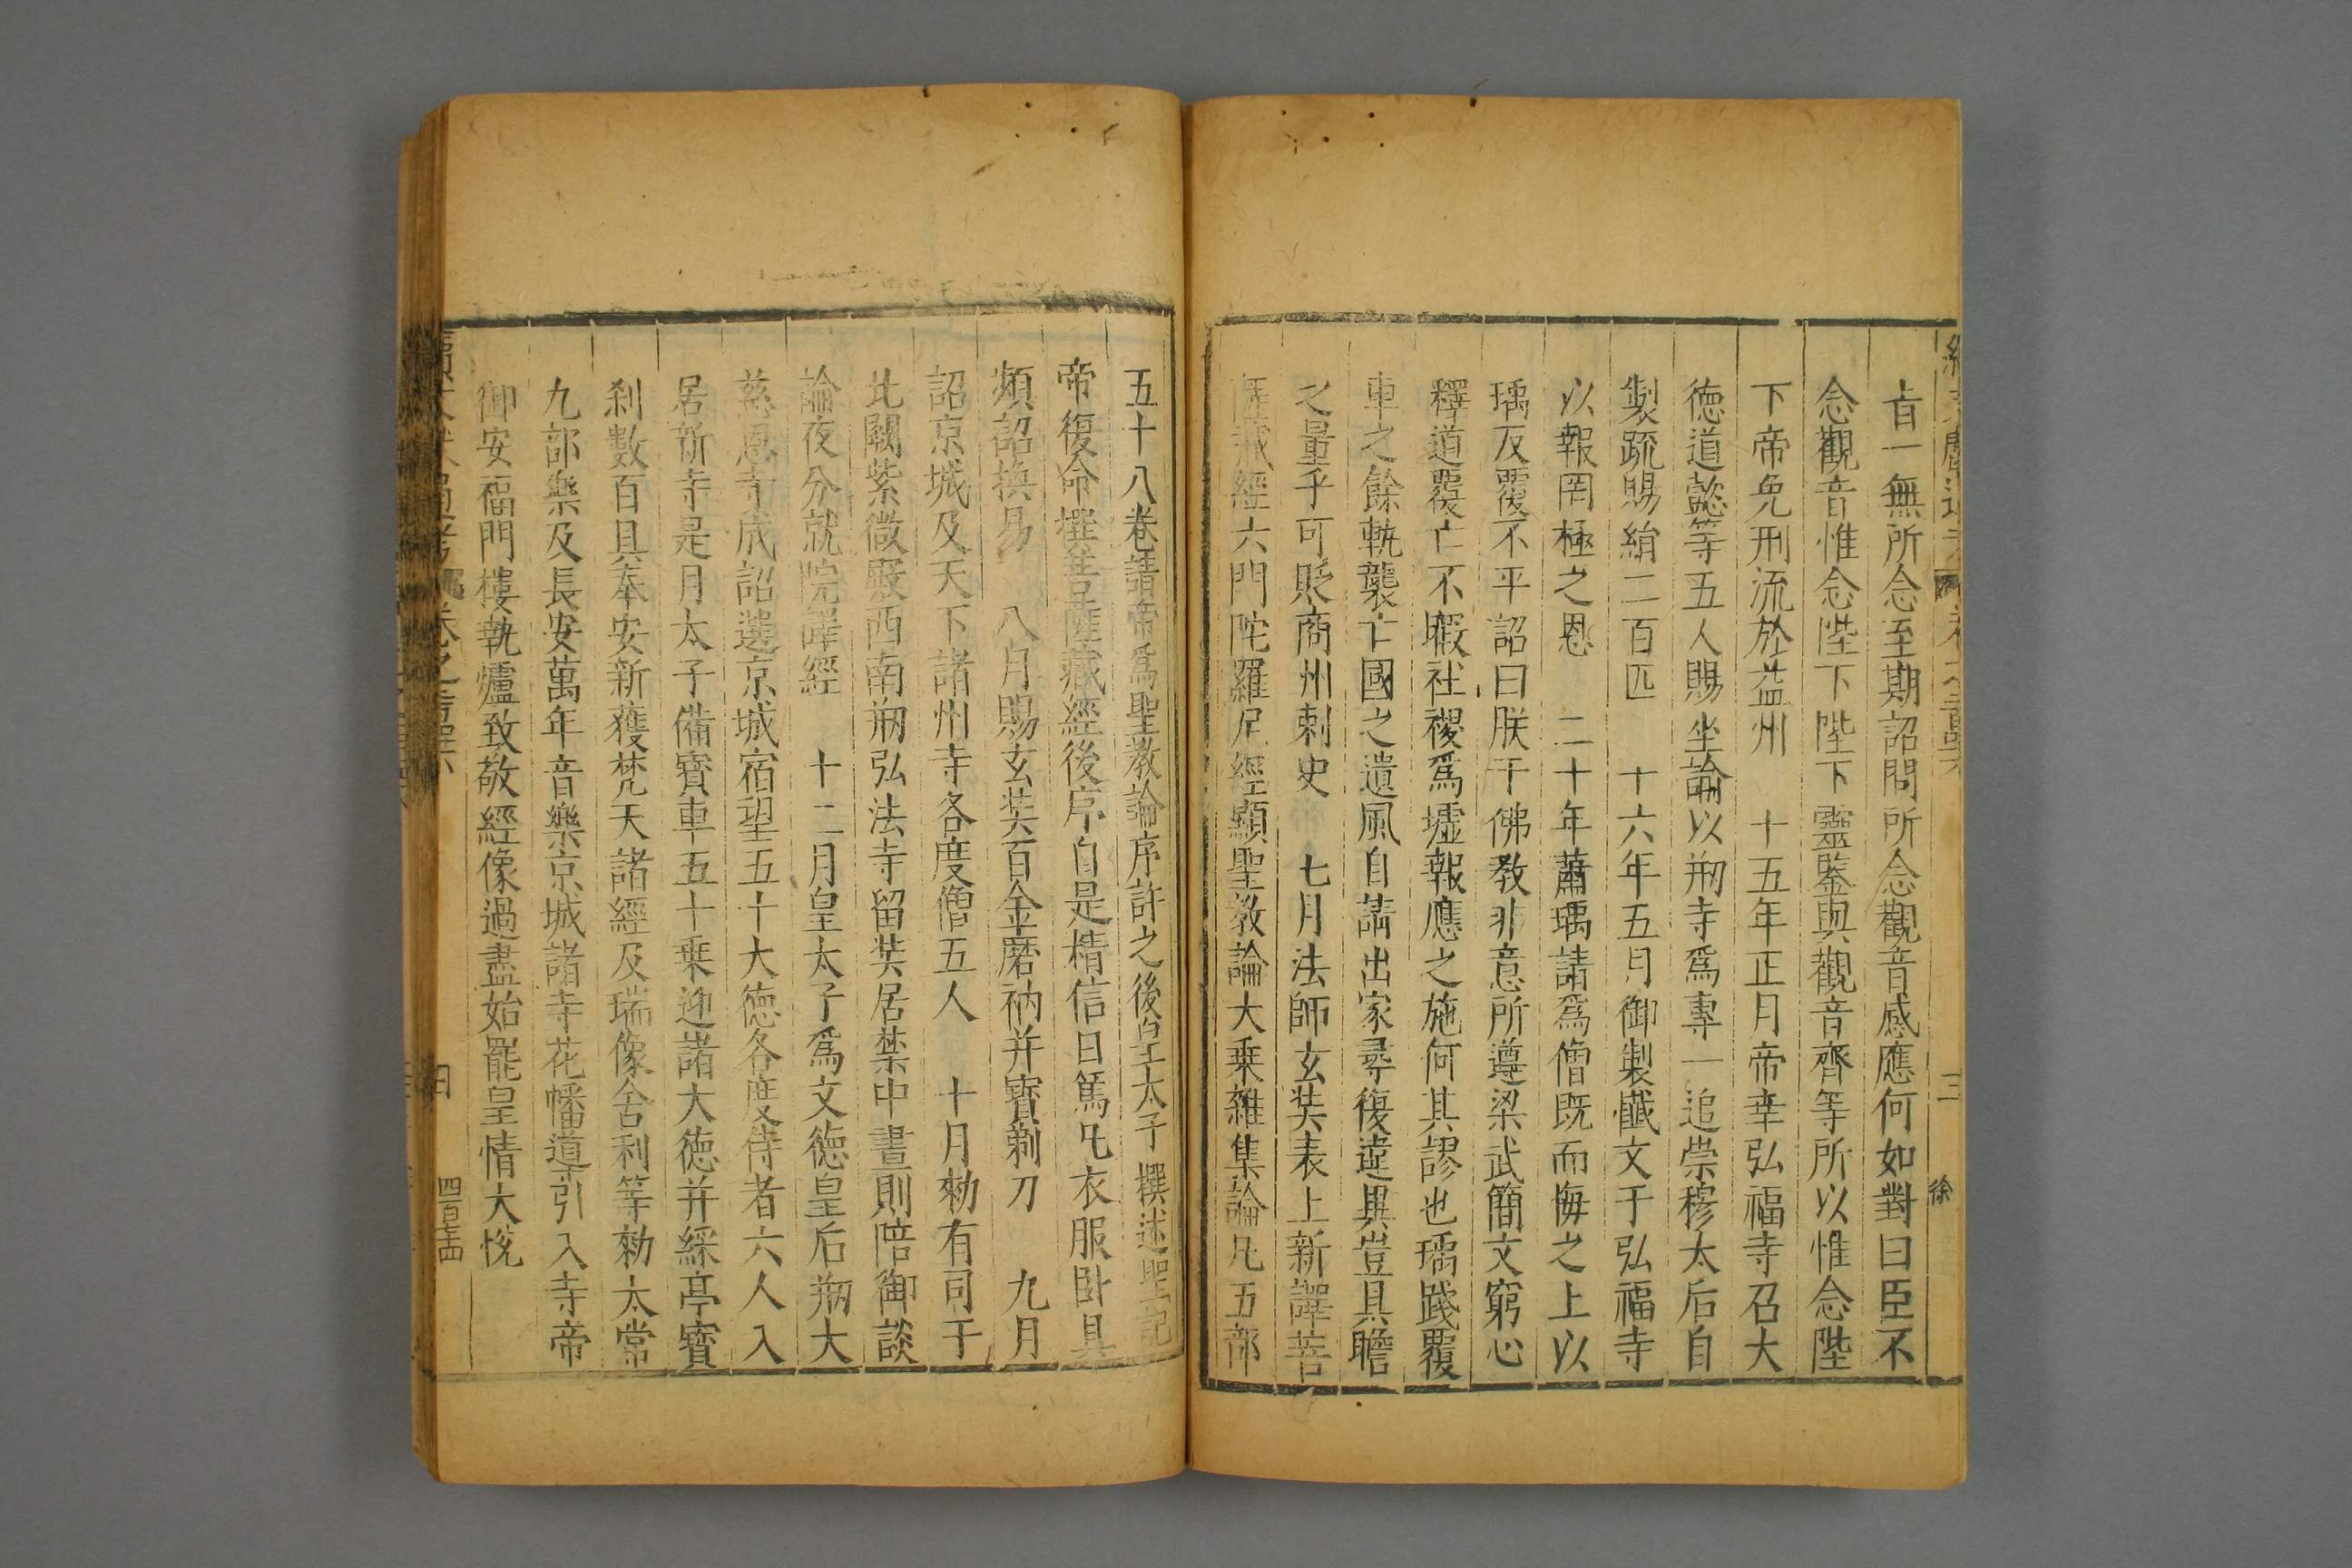 旨一無所念至期詔問所念觀音感應何如對曰臣不
念觀音惟念陛下陛下靈鑒與觀音齊等所以惟念陛
下帝免刑流於益州　十五年正月帝幸弘福寺召大
德道懿等五人賜坐論以剏寺爲專一追崇穆太后自
製疏賜絹二百匹　十六年五月御製懺文于弘福寺
以報罔極之恩　二十年蕭瑀請爲僧既而悔之上以
瑀反覆不平詔曰朕于佛教非意所遵梁武簡文窮心
釋道覆亡不暇社稷爲墟報應之施何其謬也瑀踐覆
車之餘軌襲亡國之遺風自請出家尋復違異豈具瞻
之量乎可貶商州刺史　七月法師玄奘表上新譯菩
薩藏經六門陀羅尼經顯聖教論大乗雜集論凡五部
五十八卷請帝爲聖教論序許之後皇太子撰述聖記
帝復命撰菩薩藏經後序自是精信日篤凡衣服卧具
頻詔換易　八月賜玄奘百金磨衲并寶剃刀　九月
詔京城及天下諸州寺各度僧五人　十月勑有司于
北闕紫微殿西南剏弘法寺留奘居禁中晝則陪御談
論夜分就院譯經　十二月皇太子爲文德皇后剏大
慈恩寺成詔選京城宿望五十大德各度侍者六人入
居新寺是月太子備寶車五十乗迎諸大德并綵亭寶
刹數百具奉安新獲梵天諸經及瑞像舍利等勑太常
九部樂及長安萬年音樂京城諸寺花幡導引入寺帝
御安福門樓執爐致敬經像過盡始罷皇情大悅
三
徐